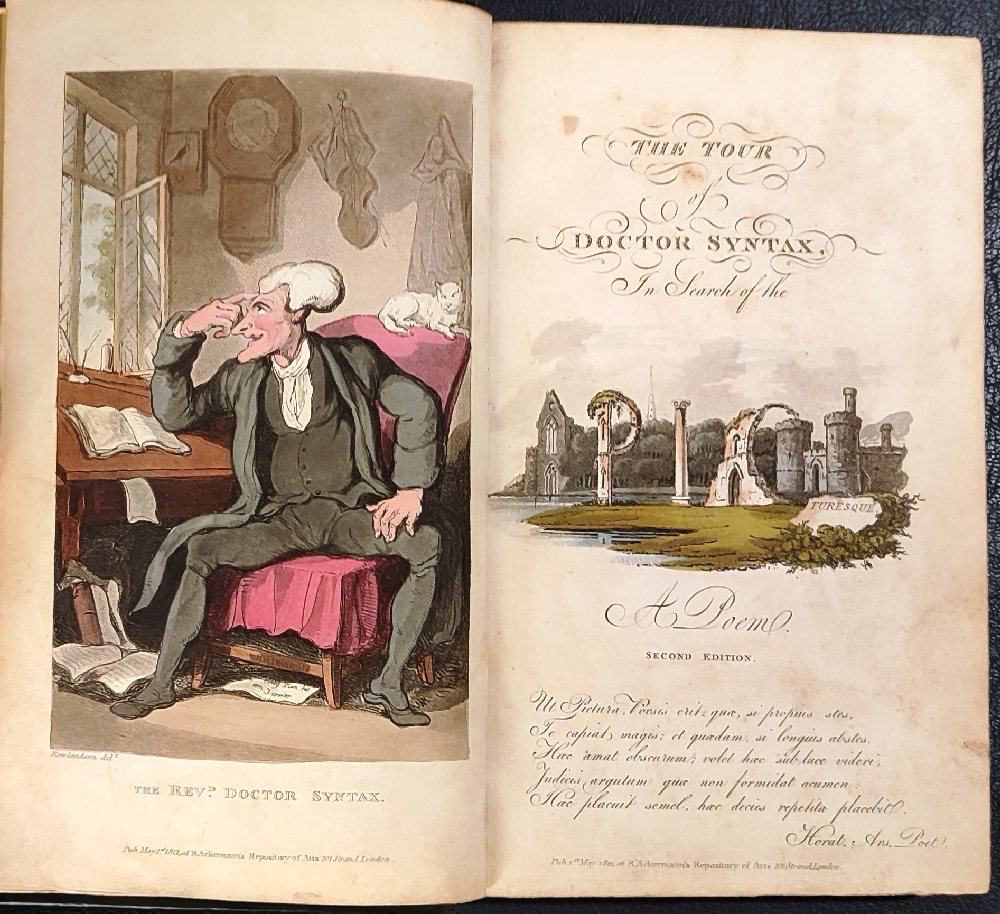 Rowlandson del.t
THE REV.D DOCTOR SYNTAX.
Pub. May 1st 1812, at R. Ackermann's Repository of Arts 101 Strand, London.
THE TOUR
of
DOCTOR SYNTAX,
In Search of the
PIC
TURESQUE
A Poem.
SECOND EDITION.
Ut Pictura, Poesis erit; quæ, si propius stes,
Te capiat magis; et quædam, si longius abstes.
Hæc amat obscurum; volet hæc sub luce videri,
Judicis argutum quæ non formidat acumen:
Hæc placuit semel, hæc decies repetita placebit.
Horat. Ars. Poet.
Pub. 1st May 1812 at R. Ackermann's Repository of Arts 101 Strand, London.